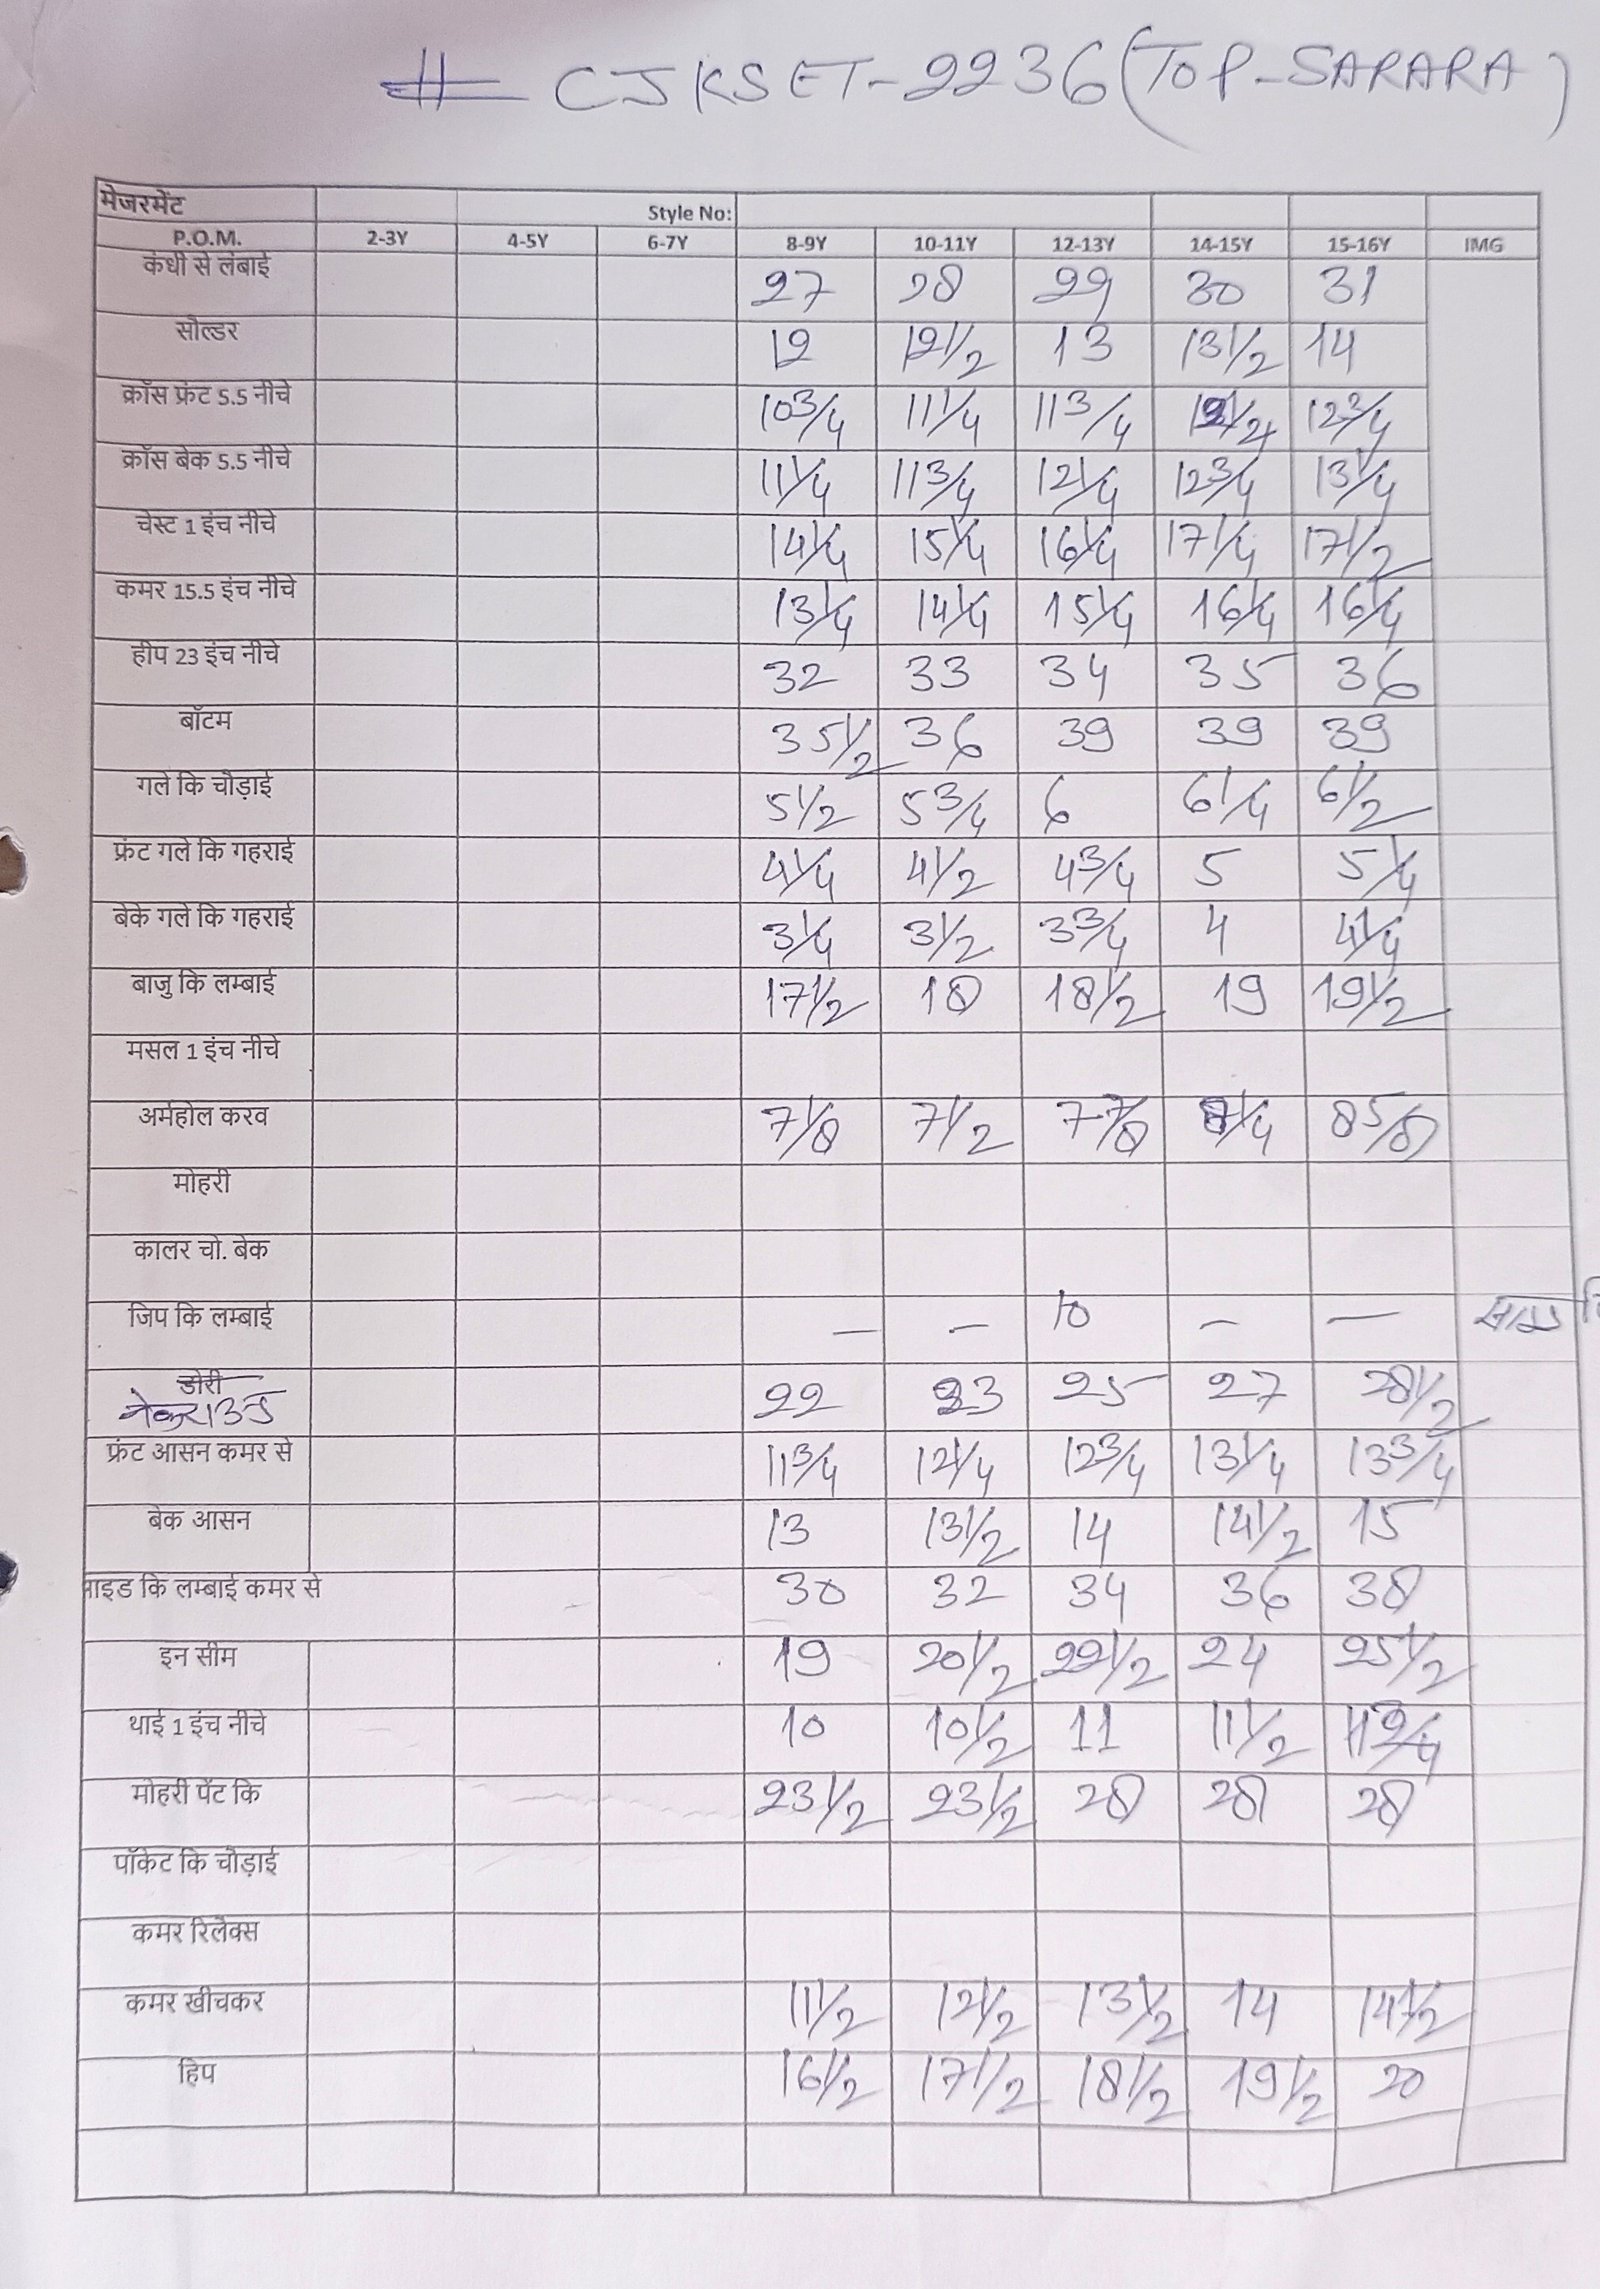 # CJKSET-2236 (TOP-SARARA)
मेजरमेंट Style No:
P.O.M. 2-3Y 4-5Y 6-7Y 8-9Y 10-11Y 12-13Y 14-15Y 15-16Y IMG
कंधी से लंबाई 27 28 29 30 31
सोल्डर 12 12 1/2 13 13 1/2 14
क्रॉस फ्रंट 5.5 नीचे 10 3/4 11 1/4 11 3/4 12 3/4
क्रॉस बेक 5.5 नीचे 11 1/4 11 3/4 12 1/4 12 3/4 13 1/4
चेस्ट 1 इंच नीचे 14 1/4 15 1/4 16 1/4 17 1/4 17 1/2
कमर 15.5 इंच नीचे 13 1/4 14 1/4 15 1/4 16 1/4 16 1/4
हीप 23 इंच नीचे 32 33 34 35 36
बॉटम 35 1/2 36 39 39 39
गले कि चौड़ाई 5 1/2 5 3/4 6 6 1/4 6 1/2
फ्रंट गले कि गहराई 4 1/4 4 1/2 4 3/4 5 5 1/4
बेके गले कि गहराई 3 1/4 3 1/2 3 3/4 4 4 1/4
बाजु कि लम्बाई 17 1/2 18 18 1/2 19 19 1/2
मसल 1 इंच नीचे
अर्महोल करव 7 1/8 7 1/2 7 7/8 8 1/4 8 5/8
मोहरी
कालर चो. बेक
जिप कि लम्बाई — — 10 — —
डोरी
नेकराउंड 22 23 25 27 28 1/2
फ्रंट आसन कमर से 11 3/4 12 1/4 12 3/4 13 1/4 13 3/4
बेक आसन 13 13 1/2 14 14 1/2 15
साइड कि लम्बाई कमर से 30 32 34 36 38
इन सीम 19 20 1/2 22 1/2 24 25 1/2
थाई 1 इंच नीचे 10 10 1/2 11 11 1/2
मोहरी पेंट कि 23 1/2 23 1/2 28 28 28
पॉकेट कि चौड़ाई
कमर रिलेक्स
कमर खीचकर 11 1/2 12 1/2 13 1/2 14 14 1/2
हिप 16 1/2 17 1/2 18 1/2 19 1/2 20